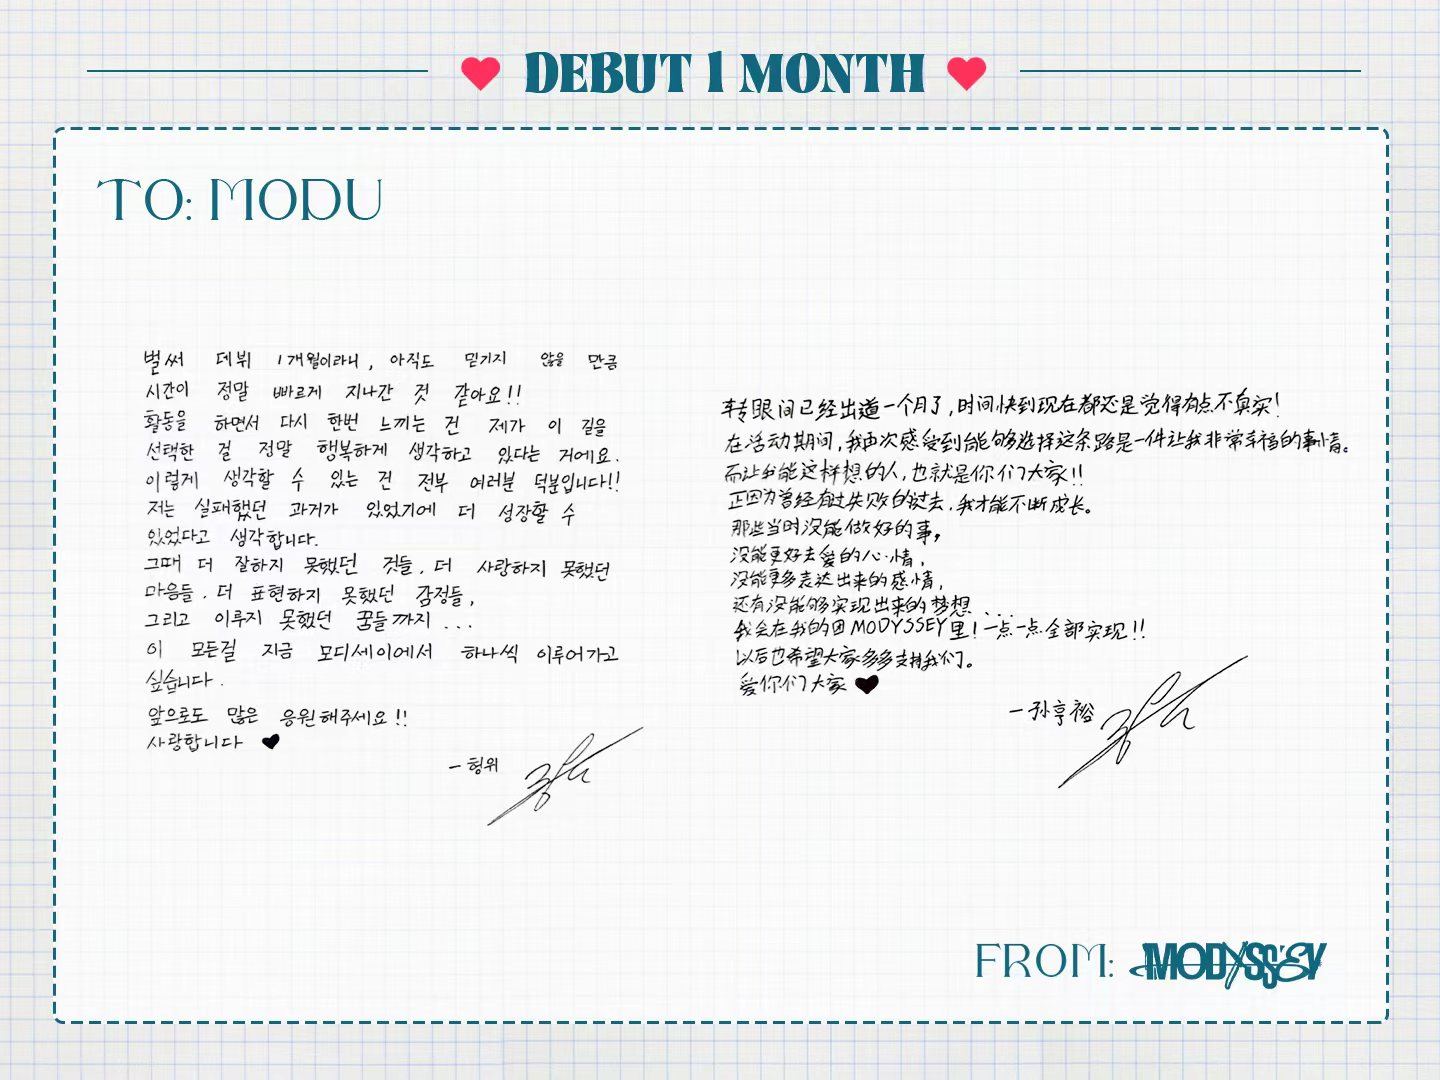 DEBUT 1 MONTH
TO: MODU
벌써 데뷔 1개월이라니, 아직도 믿기지 않을 만큼
시간이 정말 빠르게 지나간 것 같아요!!
활동을 하면서 다시 한번 느끼는 건 제가 이 길을
선택한 걸 정말 행복하게 생각하고 있다는 거에요.
이렇게 생각할 수 있는 건 전부 여러분 덕분입니다!!
저는 실패했던 과거가 있었기에 더 성장할 수
있었다고 생각합니다.
그때 더 잘하지 못했던 것들. 더 사랑하지 못했던
마음들. 더 표현하지 못했던 감정들,
그리고 이루지 못했던 꿈들까지 ...
이 모든걸 지금 모디세이에서 하나씩 이루어가고
싶습니다.
앞으로도 많은 응원해주세요!!
사랑합니다 ♥
- 형위
转眼间已经出道一个月了,时间快到现在都还是觉得有点不真实!
在活动期间,我再次感受到能够选择这条路是一件让我非常幸福的事情。
而让我能这样想的人,也就是你们大家!!
正因为曾经有过失败的过去,我才能不断成长。
那些当时没能做好的事,
没能更好去爱的心情,
没能更多表达出来的感情,
还有没能够实现出来的梦想 ....
我会在我的团MODYSSEY里!一点一点全部实现!!
以后也希望大家多多支持我们。
爱你们大家 ♥
- 孙亨裕
FROM: MODYSSEY